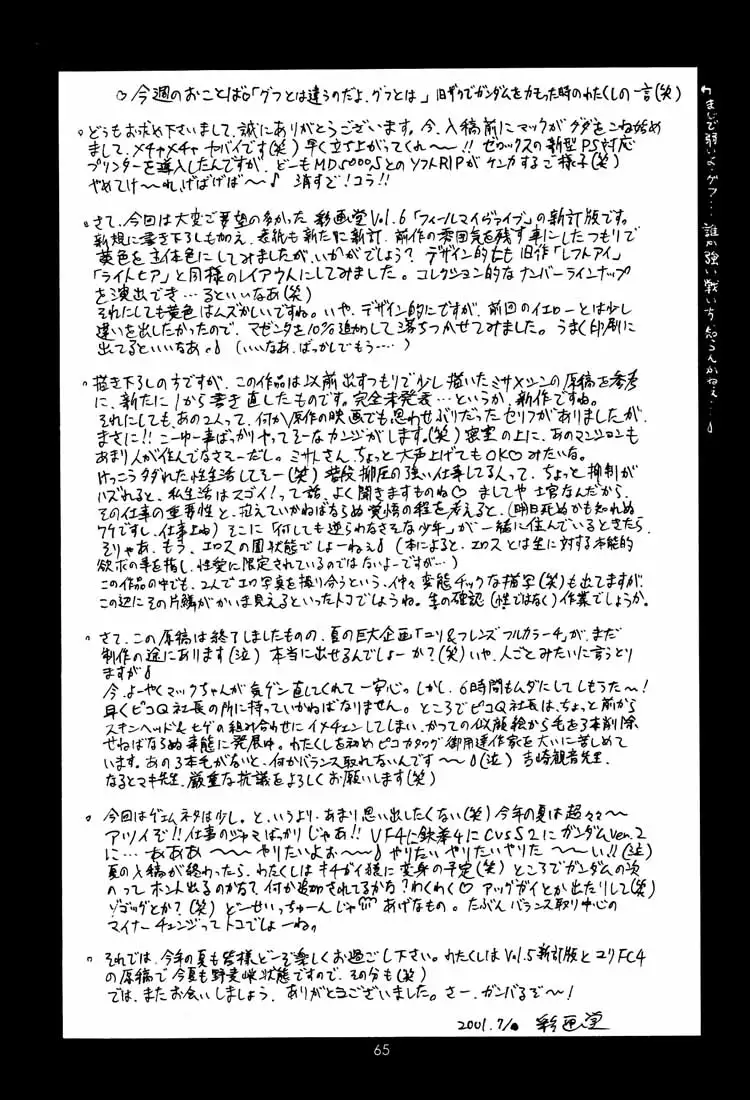 ♡今週のおことば♡「グフとは違うのだよ、グフとは」旧ザクでガンダムをカモった時のわたくしの一言(笑)
まじで弱いよ、グフ…。誰か強い戦い方知らんかねぇ…♪
。どうもお求め下さいまして、誠にありがとうございます。今、入稿前にマックがグダをこね始め
まして、メチャメチャ ヤバイです(笑)早く立ち上がってくれ〜!!ゼロックスの新型PS対応
プリンターを導入したんですが、どーもMD5000,5とのソフトRIPがケンカするご様子(笑)
やめてけ〜れ、げばげば〜♪ 消すぞ!コラ!!
。さて、今回は大変ご要望の多かった 彩画堂Vol.6「フィールマイヴァイブ」の新訂版です。
新規に書き下ろしも加え、表紙も新たに新訂、前作の雰囲気を残す事にしたつもりで
黄色を主体色にしてみましたが、いかがでしょう?デザイン的にも旧作「レフトアイ」
「ライトヒア」と同様のレイアウトにしてみました。コレクション的なナンバーラインナップ
を演出でき…るといいなあ(笑)
それにしても黄色はムズかしいですね。いや、デザイン的にですが、前回のイエローとは少し
違いを出したかったので、マゼンタを10%追加して落ちつかせてみました。うまく印刷に
出てるといいなあ。♪ (いいなあ、ばっかしでもう‥‥)
。描き下しのちですが、この作品は以前出すつもりで少し描いたミサ×シンの原稿を参考
に、新たに1から書き直したものです。完全未発表…というか、新作ですね。
それにしても、あの2人って、何か原作の映画でも思わせぶりだったセリフがありましたが、
まさに!!こーゆー事ばっかりヤってそーなカンジがします。(笑)密室の上に、あのマンションも
あまり人が住んでなさそーだし。ミサトさん、ちょっと大声上げてもOK♡みたいな。
けっこうタダれた性生活してそー(笑)普段抑圧の強い仕事してる人って、ちょっと抑制が
ハズれると、私生活はスゴイ!って話、よく聞きますものね♡ ましてや士官なんだから、
その仕事の重要性と、抱えていかねばならぬ覚悟の程を考えると、(明日死ぬかも知れぬ
ワケですし、仕事上ね)そこに「何しても逆らわなさそな少年」が一緒に住んでいるときたら、
そりゃあ、もう、エロスの園状態でしょーねぇ♪(本によると、エロスとは生に対する本能的
欲求の事を指し、性愛に限定されているのではないよーですが…)
この作品の中でも、2人でエロ写真を撮り合うという、仲々変態チックな描写(笑)も出てますが、
この辺にその片鱗がかいま見えるといったトコでしょうね。生の確認(性ではなく)作業でしょうか。
。さて、この原稿は終了しましたものの、夏の巨大企画「ユリ&フレンズフルカラー4」が、まだ
制作の途にあります(泣)本当に出せるんでしょーか?(笑)いや、人ごとみたいに言うとり
ますが♪
今、よーやくマックちゃんが気ゲン直してくれて一安心。しかし、6時間もムダにしてしもうた〜!
早くピコQ社長の所に持っていかねばなりません。ところでピコQ社長は、ちょっと前から
スキンヘッド&ヒゲの組み合わせにイメチェンしてしまい、かつての似顔絵から毛を3本削除
せねばならぬ事態に発展中。わたくしを初めピコカタログ御用達作家を大いに苦しめて
います。あの3本毛がないと、何かバランス取れないんです〜♪(泣)吉崎観音先生、
なるとマキ先生、厳重な抗議をよろしくお願いします(笑)
。今回はゲェムネタは少し。と、いうより、あまり思い出したくない(笑)今年の夏は超々々〜
アツイぞ!!仕事のジャマばっかりじゃあ!!VF4に鉄拳4にCvsS2にガンダムVer.2
に…あああ〜〜やりたいよお〜♪やりたいやりたいやりた〜〜い!!(泣)
夏の入稿が終わったら、わたくしはキチガイ猿に変身の予定(笑)ところでガンダムの次
のってホント出るのかな?何か追加されてるかな?わくわく♡ アッグガイとか出たりして(笑)
ゾゴックとか?(笑)どーせいっちゅーんじゃ あげなもの。たぶん バランス取り中心の
マイナーチェンジってトコでしょーね。
。それでは、今年の夏も皆様どーぞ楽しくお過ごし下さい。わたくしはVol.5新訂版とユリFC4
の原稿で今夏も野麦峠状態ですので、その分も(笑)
では、またお会いしましょう、ありがとうございました。さー、ガンバるぞ〜!
2001.7/ 彩画堂
65